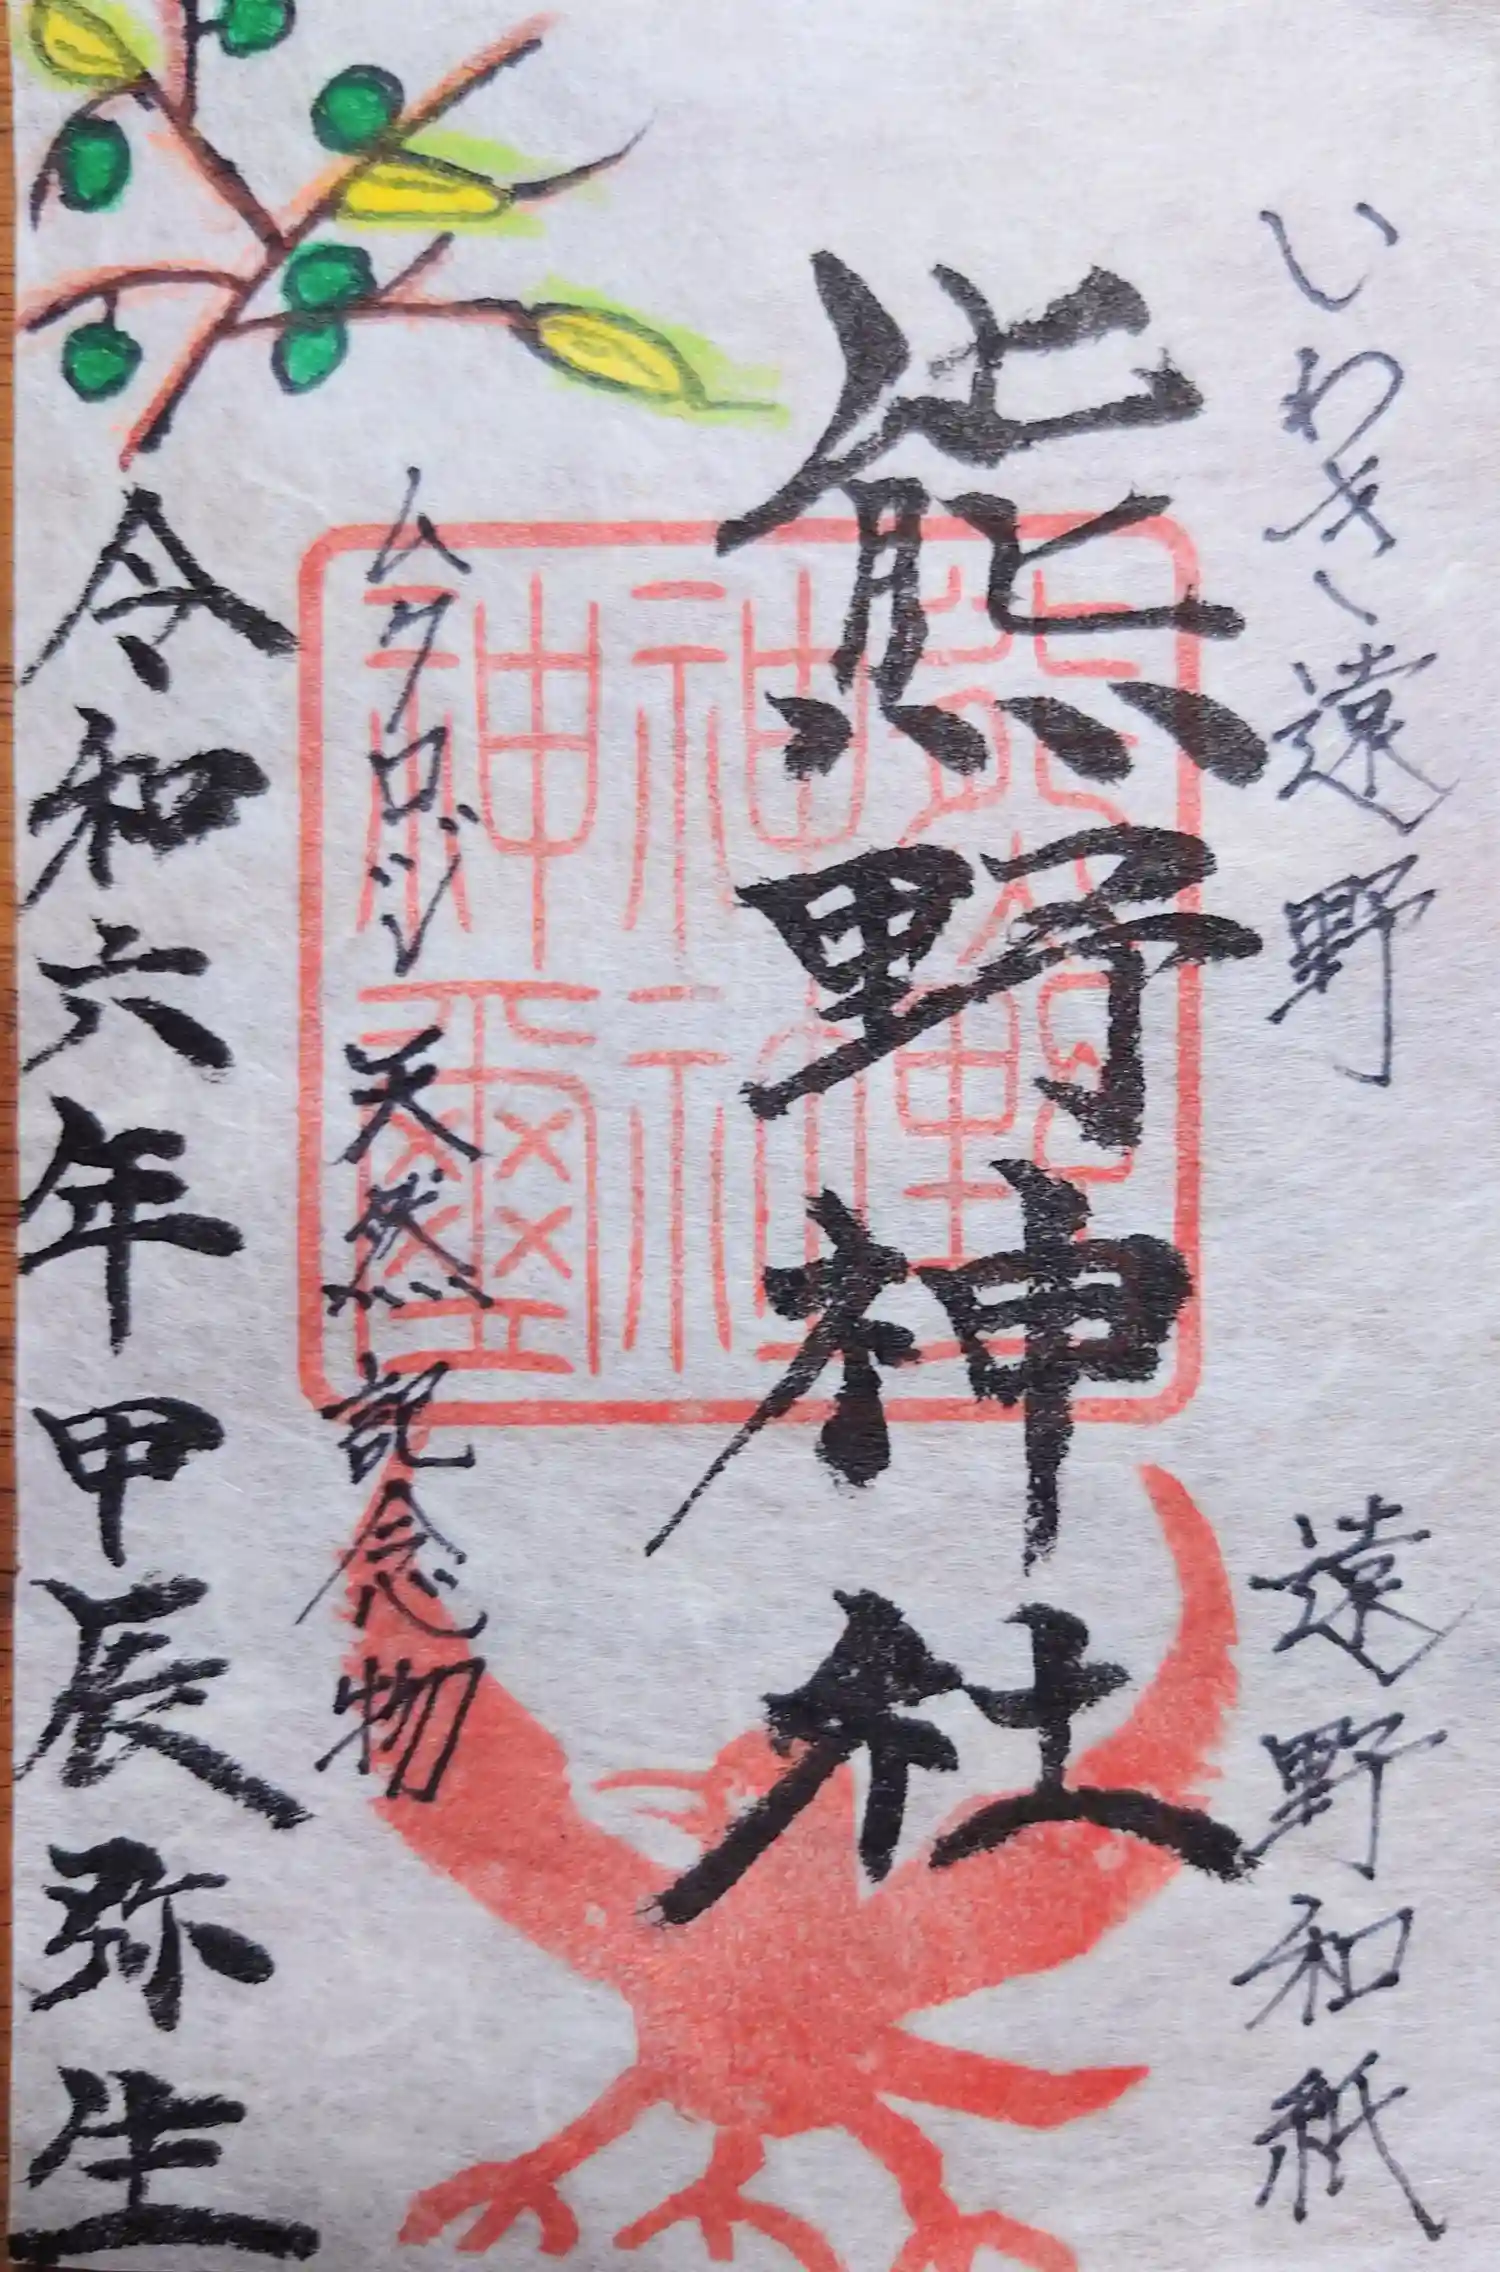 いわき、遠野　遠野和紙
熊野神社
熊野神社神璽
ムクロジ天然記念物
令和六年甲辰弥生